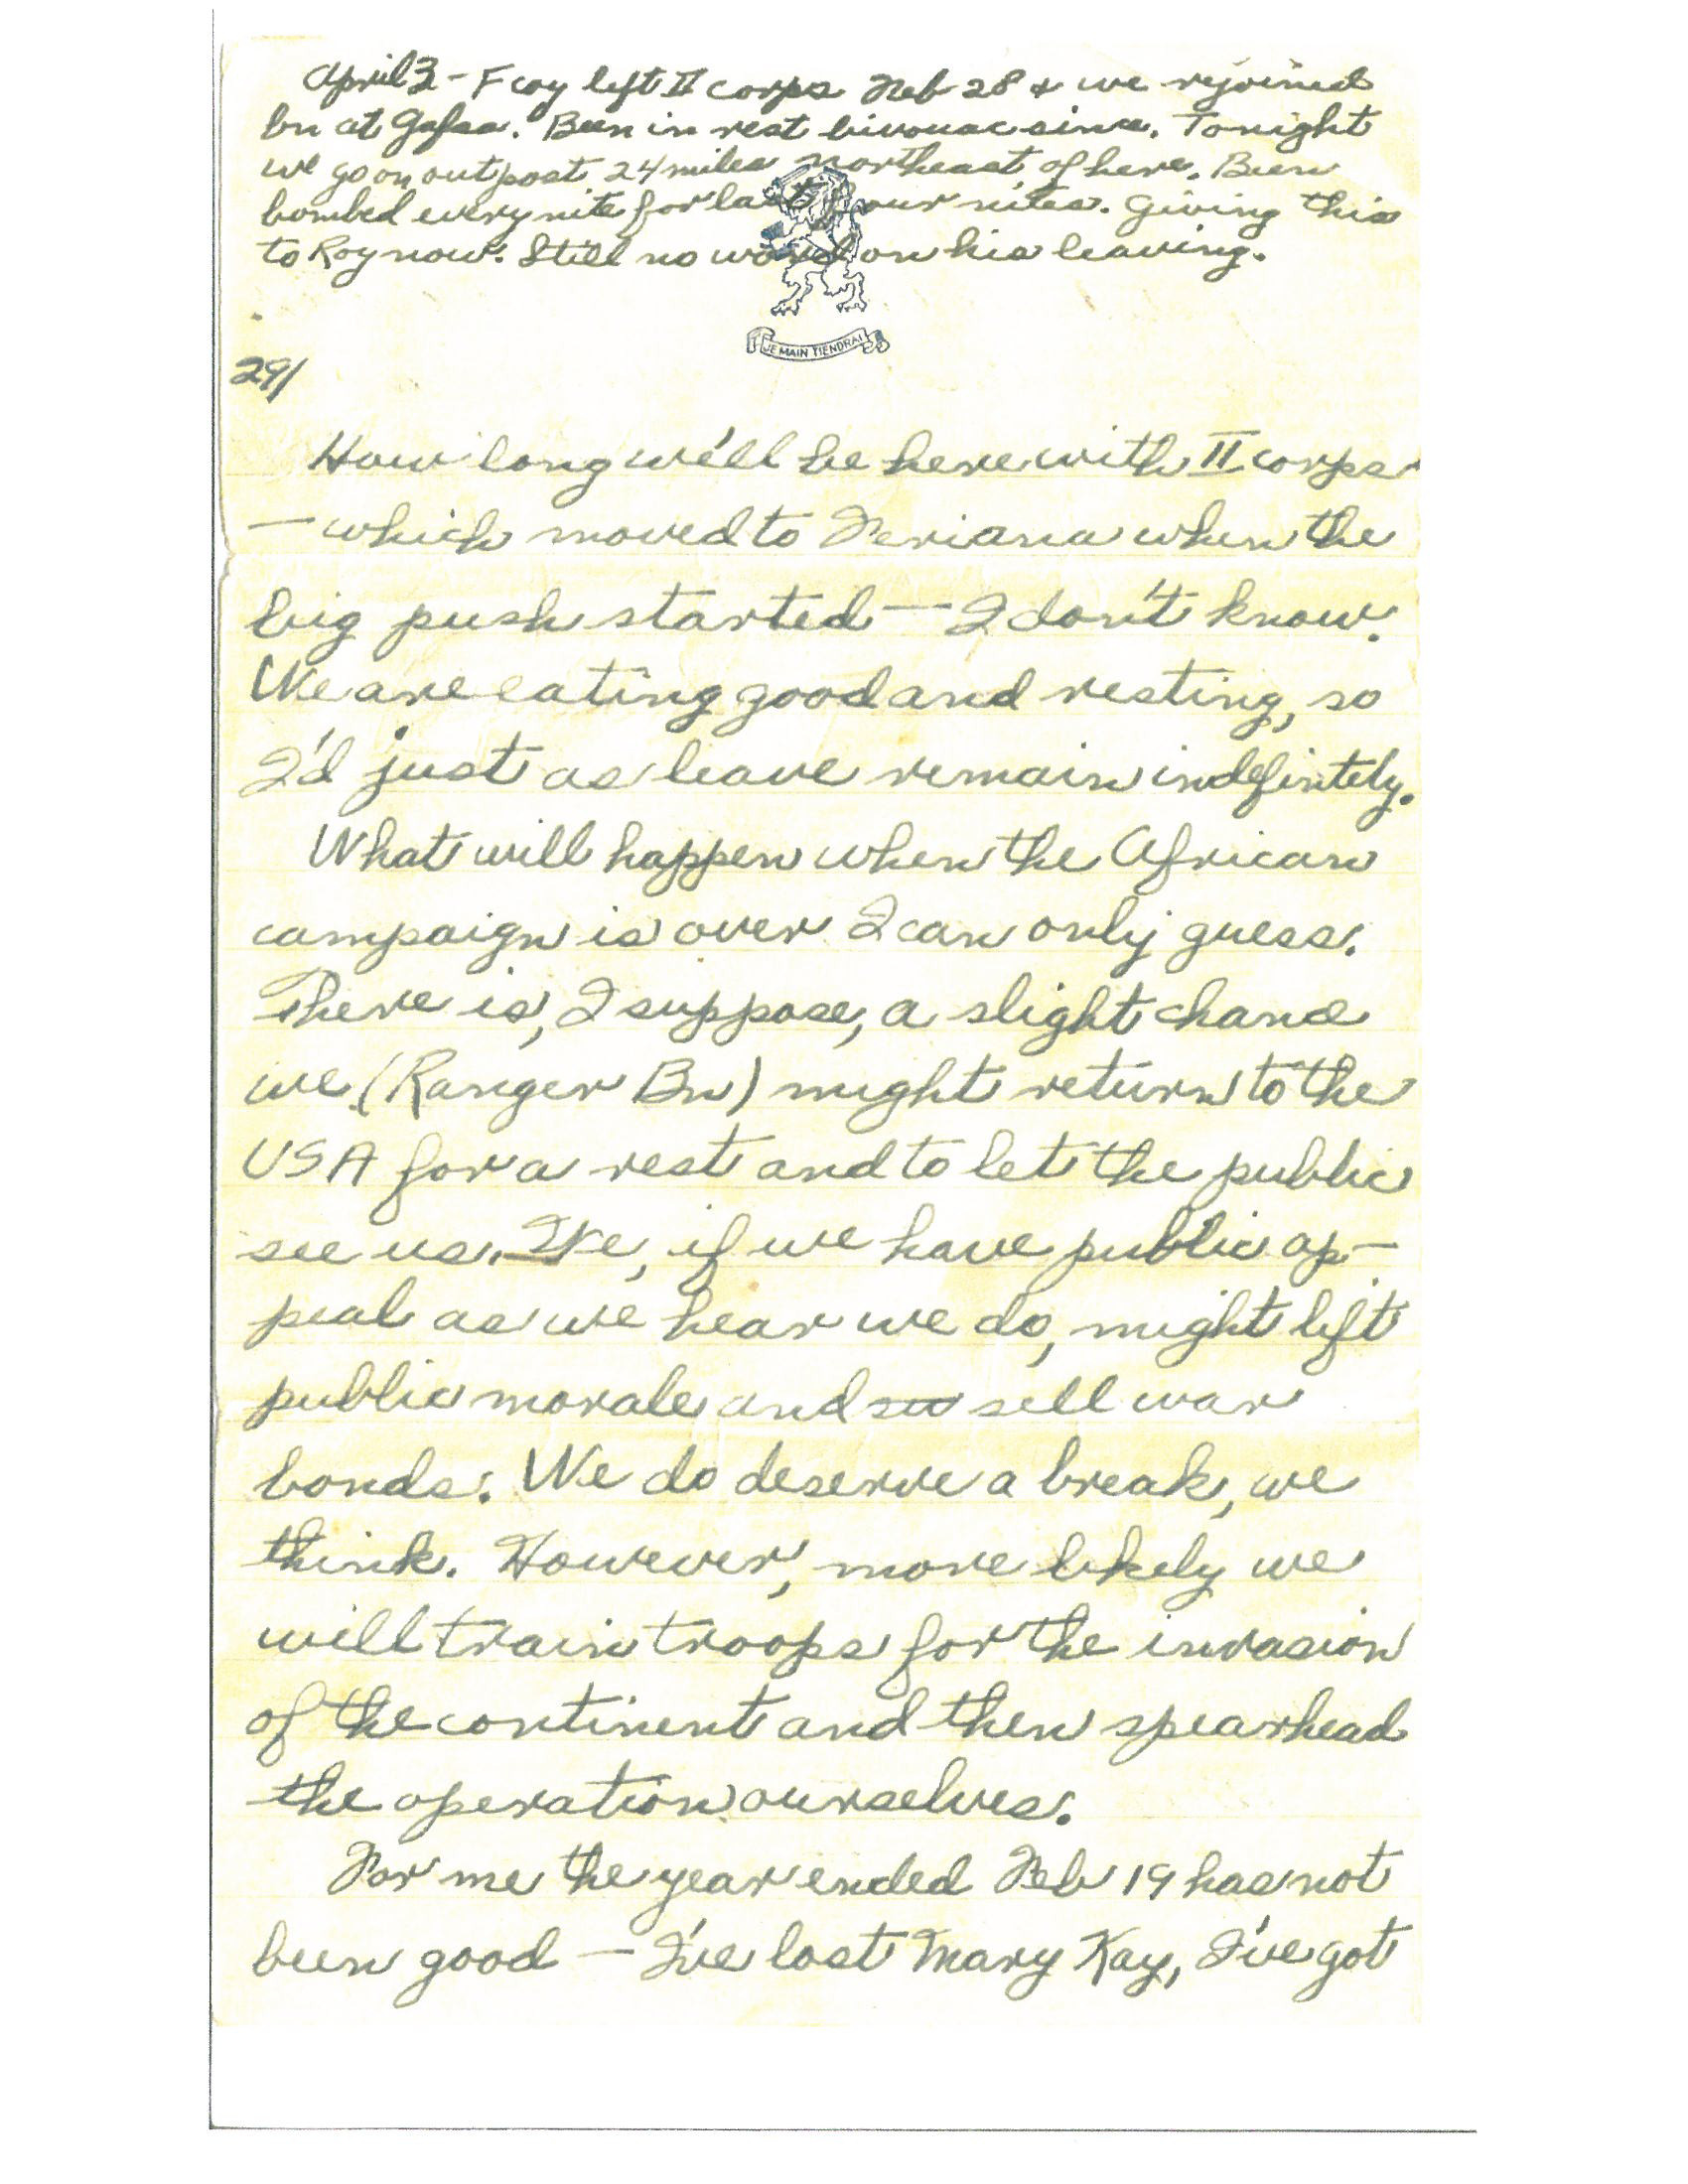 April 3 - F coy left II corps Feb 28 & we rejoined
bn at Gafsa. Been in rest bivouac since. Tonight
we go on outpost 24 miles northeast of here. Been
bombed every nite for last four nites. Giving this
to Roy now. Still no word on his leaving.
JE MAIN TIENDRAI
29/
How long we'll be here with II corps
— which moved to Feriana when the
big push started — I don't know.
We are eating good and resting, so
I'd just as leave remain indefintely.
What will happen when the African
campaign is over I can only guess.
There is, I suppose, a slight chance
we (Ranger Bn) might return to the
USA for a rest and to let the public
see us. We, if we have public ap-
peal as we hear we do, might lift
public morale and sell war
bonds. We do deserve a break, we
think. However, more likely we
will train troops for the invasion
of the continent and then spearhead
the operation ourselves.
For me the year ended Feb 19 has not
been good — I've lost Mary Kay, I've got